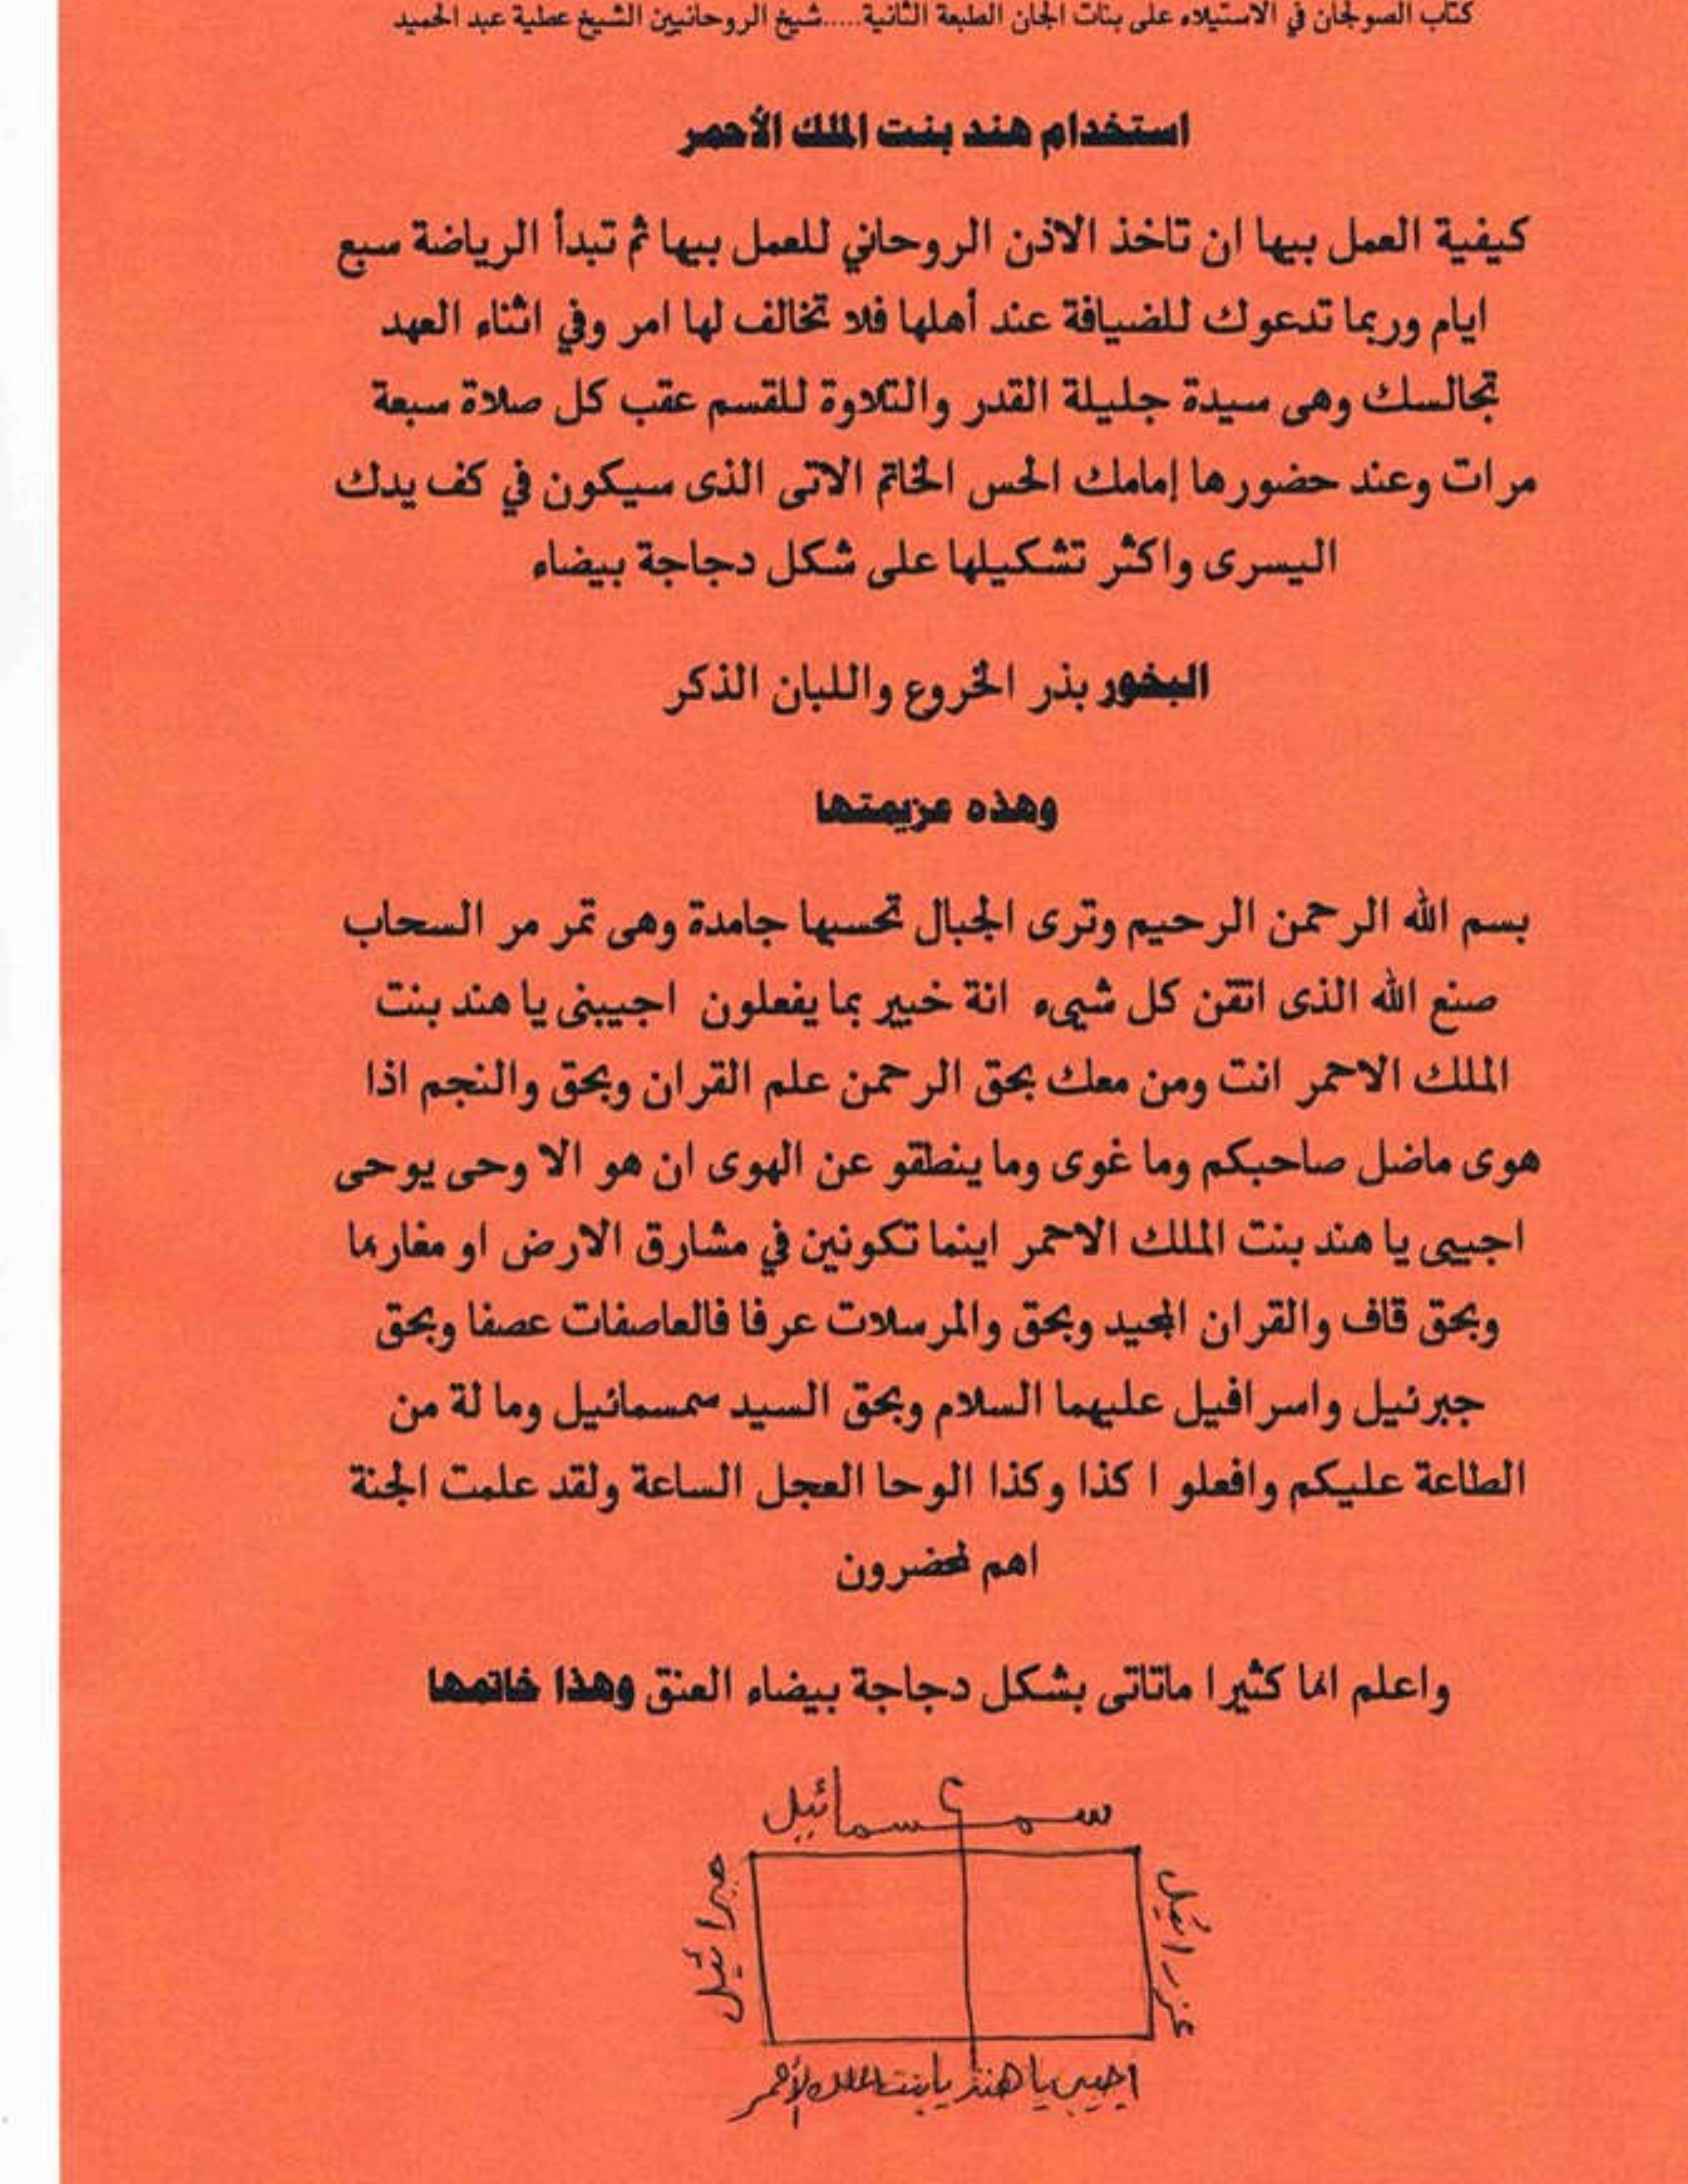 كتاب الصولجان في الاستيلاء على بنات الجان الطبعة الثانية.....شيخ الروحانيين الشيخ عطية عبد الحميد
استخدام هند بنت الملك الأحمر
كيفية العمل بيها ان تاخذ الاذن الروحاني للعمل بيها ثم تبدأ الرياضة سبع
ايام وربما تدعوك للضيافة عند أهلها فلا تخالف لها امر وفي اثناء العهد
تجالسك وهى سيدة جليلة القدر والتلاوة للقسم عقب كل صلاة سبعة
مرات وعند حضورها إمامك الحس الخاتم الاتى الذى سيكون في كف يدك
اليسرى واكثر تشكيلها على شكل دجاجة بيضاء
البخور بذر الخروع واللبان الذكر
وهذه عزيمتها
بسم الله الرحمن الرحيم وترى الجبال تحسبها جامدة وهى تمر مر السحاب
صنع الله الذى اتقن كل شيىء انة خبير بما يفعلون اجيبنى يا هند بنت
الملك الاحمر انت ومن معك بحق الرحمن علم القران وبحق والنجم اذا
هوى ماضل صاحبكم وما غوى وما ينطقو عن الهوى ان هو الا وحى يوحى
اجيبى يا هند بنت الملك الاحمر اينما تكونين في مشارق الارض او مغاربها
وبحق قاف والقران المجيد وبحق والمرسلات عرفا فالعاصفات عصفا وبحق
جبرئيل واسرافيل عليهما السلام وبحق السيد سمسمائيل وما لة من
الطاعة عليكم وافعلو ا كذا وكذا الوحا العجل الساعة ولقد علمت الجنة
اهم لمحضرون
واعلم انها كثيرا ماتاتى بشكل دجاجة بيضاء العنق وهذا خاتمها
سمسمائيل
جبرائيل
عزرائيل
اجيبى يا هند يا بنت الملك الأحمر